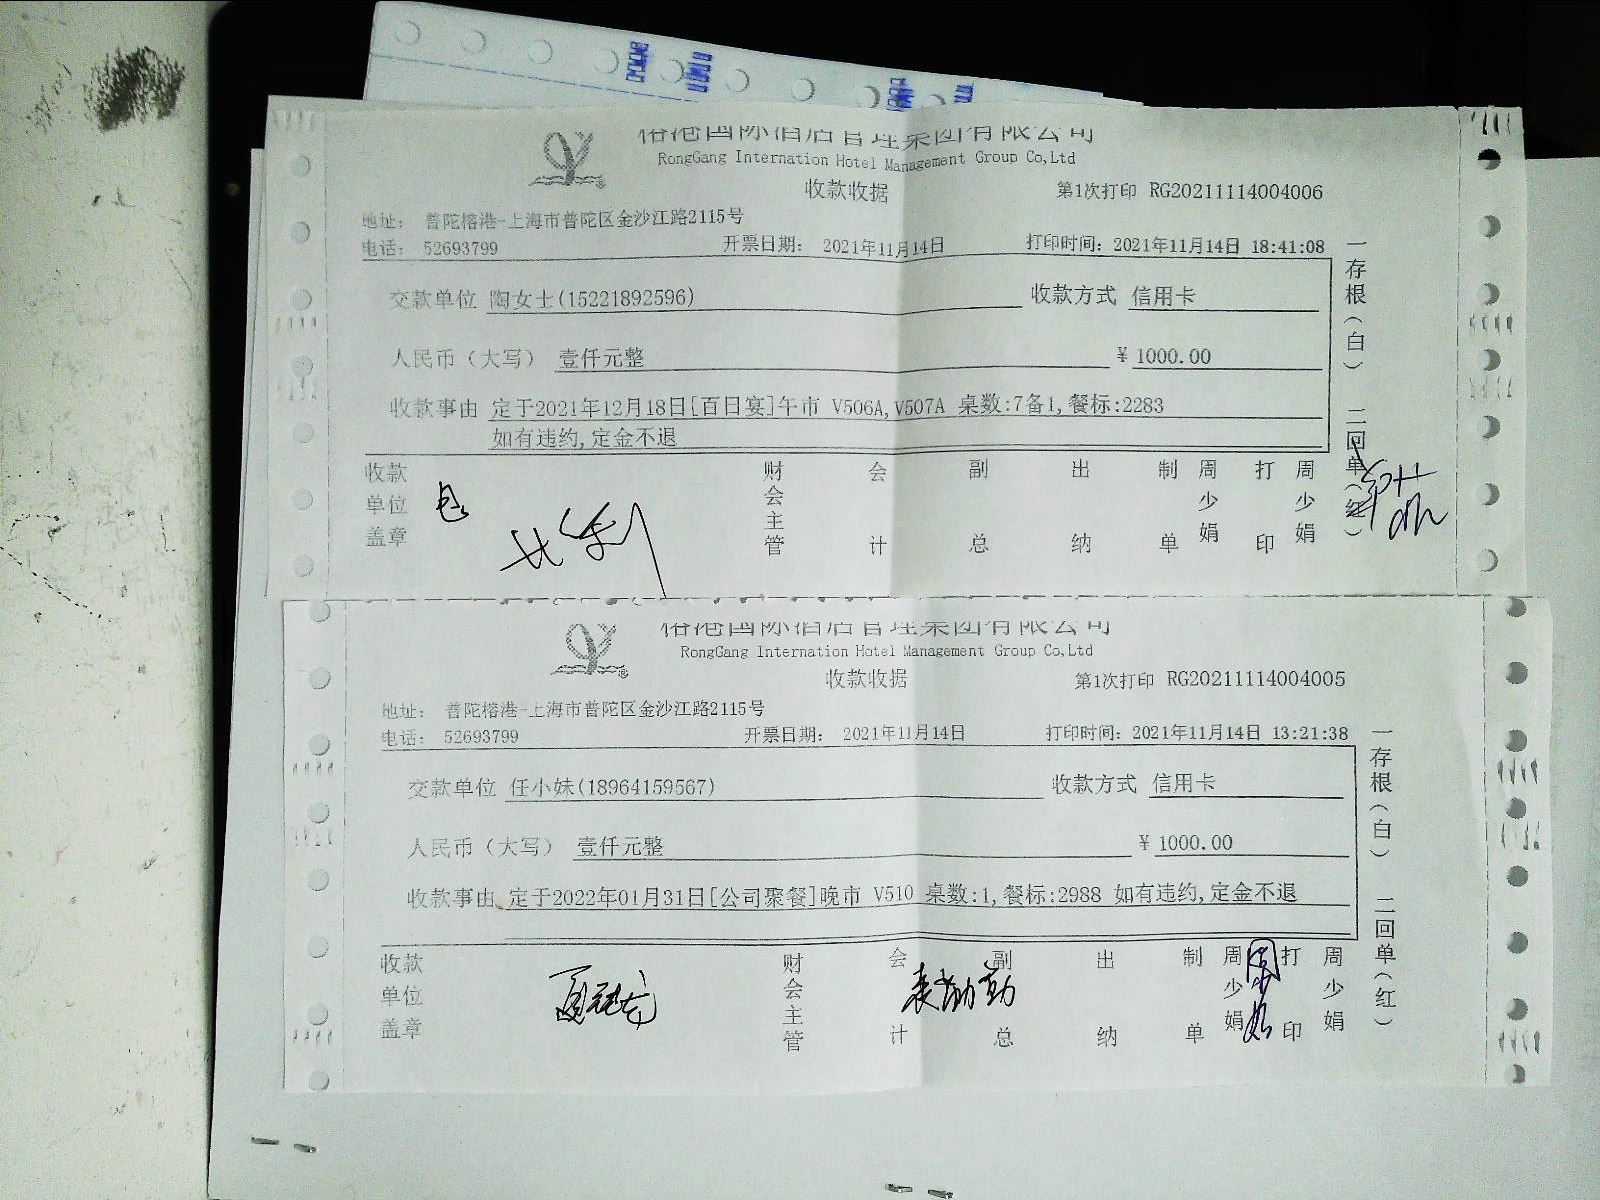 榕港国际酒店管理集团有限公司
RongGang Internation Hotel Management Group Co,Ltd
收款收据 第1次打印 RG20211114004006
地址： 普陀榕港-上海市普陀区金沙江路2115号
电话： 52693799 开票日期： 2021年11月14日 打印时间：2021年11月14日 18:41:08
交款单位 陶女士(15221892596) 收款方式 信用卡
人民币（大写） 壹仟元整 ¥ 1000.00
收款事由 定于2021年12月18日[百日宴]午市 V506A,V507A 桌数:7备1,餐标:2283
如有违约,定金不退
收款单位盖章 财会主管 会计 副总 出纳 制单 周少娟 打印 周少娟
一存根（白） 二回单（红）
榕港国际酒店管理集团有限公司
RongGang Internation Hotel Management Group Co,Ltd
收款收据 第1次打印 RG20211114004005
地址： 普陀榕港-上海市普陀区金沙江路2115号
电话： 52693799 开票日期： 2021年11月14日 打印时间：2021年11月14日 13:21:38
交款单位 任小妹(18964159567) 收款方式 信用卡
人民币（大写） 壹仟元整 ¥ 1000.00
收款事由 定于2022年01月31日[公司聚餐]晚市 V510 桌数:1,餐标:2988 如有违约,定金不退
收款单位盖章 财会主管 会计 副总 出纳 制单 周少娟 打印 周少娟
一存根（白） 二回单（红）